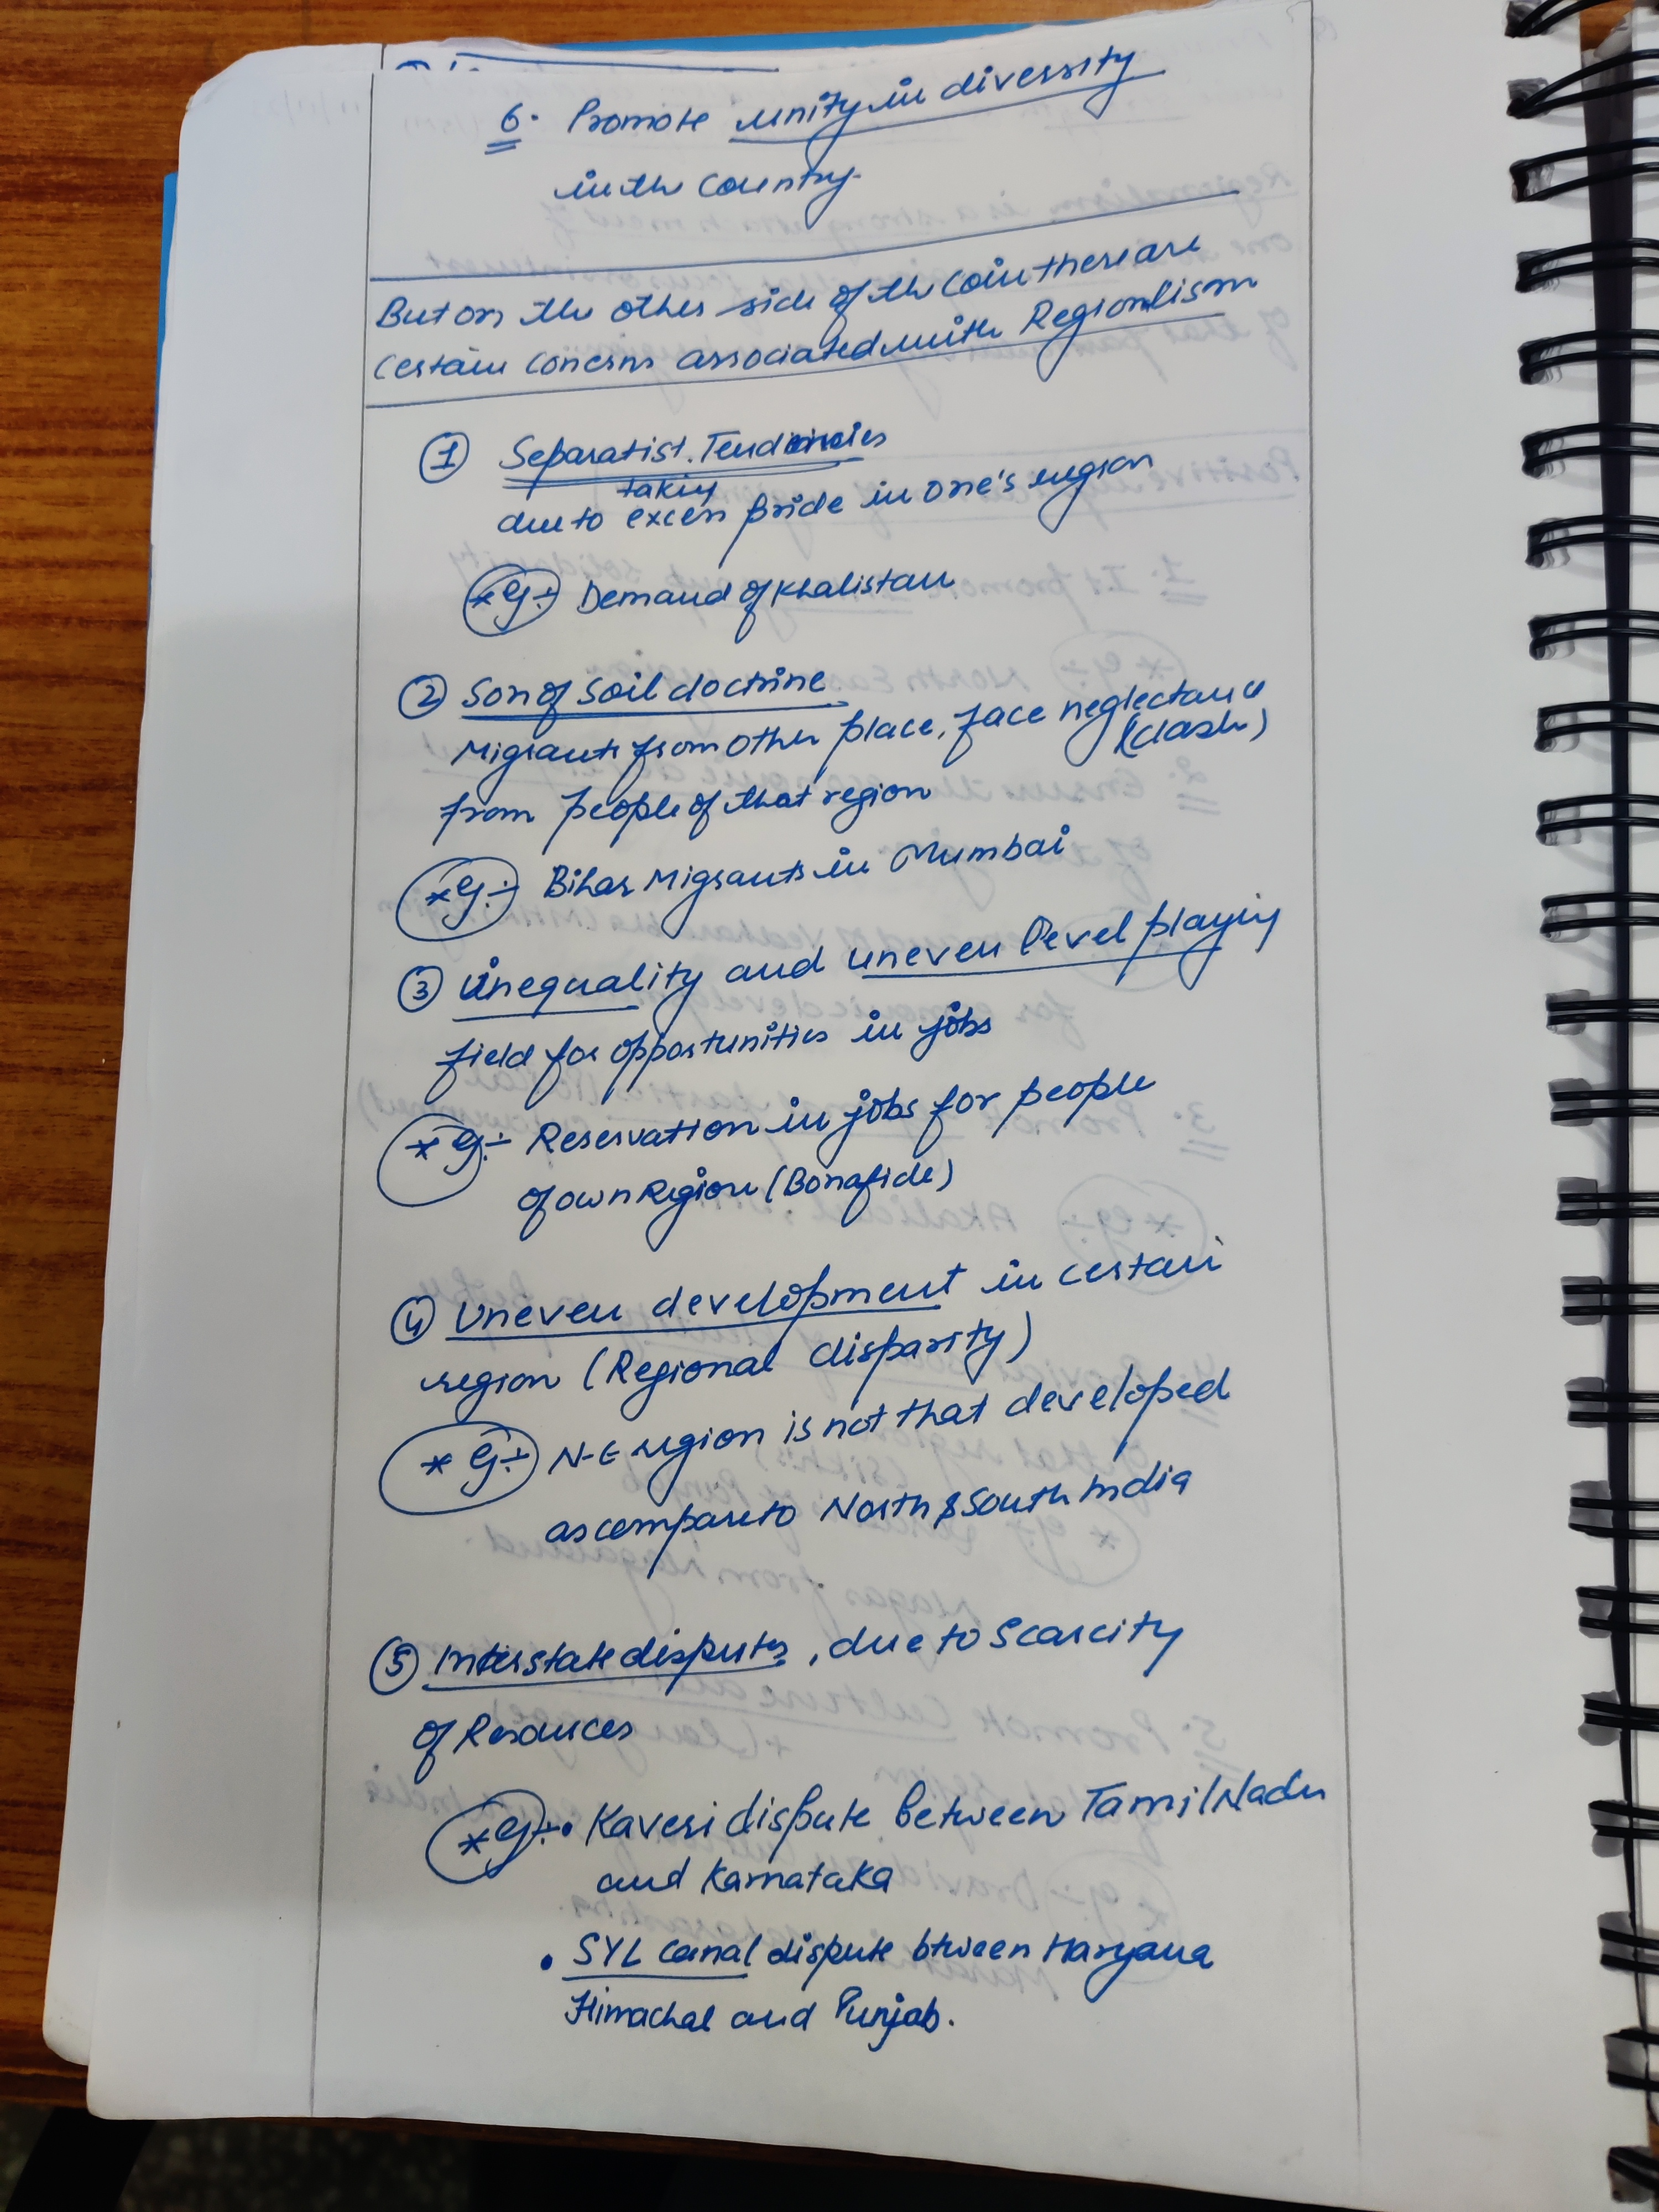 6. Promote unity in diversity
in the country.
But on the other side of the coin there are
certain concerns associated with Regionalism
① Separatist Tendencies
taking
due to excess pride in one's region
*eg:- Demand of Khalistan
② Son of Soil doctrine
Migrants from other place, face neglectance
(clash)
from people of that region
*eg:- Bihar Migrants in Mumbai
③ Unequality and uneven level playing
field for opportunities in jobs
*eg:- Reservation in jobs for people
of own Region (Bonafide)
④ Uneven development in certain
region (Regional disparity)
*eg:- N-E region is not that developed
as compare to North & South India
⑤ Interstate disputes, due to Scarcity
of Resources
*eg:- • Kaveri dispute between Tamil Nadu
and Karnataka
• SYL canal dispute btween Haryana
Himachal and Punjab.